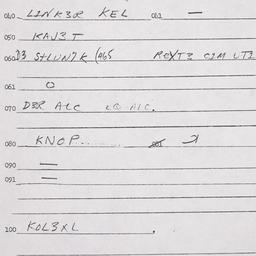 040 LINK3R KEL 041 —
050 KAJ3T
060 D3 STLUN7K (065 CIM UTI
061 O
070 D3R ALC LQ ALC.
080 KNOP...
090 —
091 —
100 KOL3XL